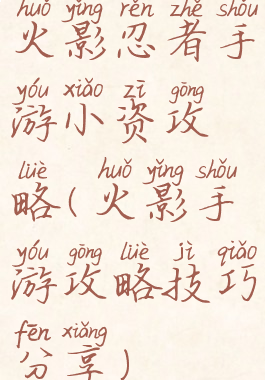 huǒ yǐng rěn zhě shǒu
火影忍者手
yóu xiǎo zī gōng
游小资攻
lüè huǒ yǐng shǒu
略(火影手
yóu gōng lüè jì qiǎo
游攻略技巧
fēn xiǎng
分享)